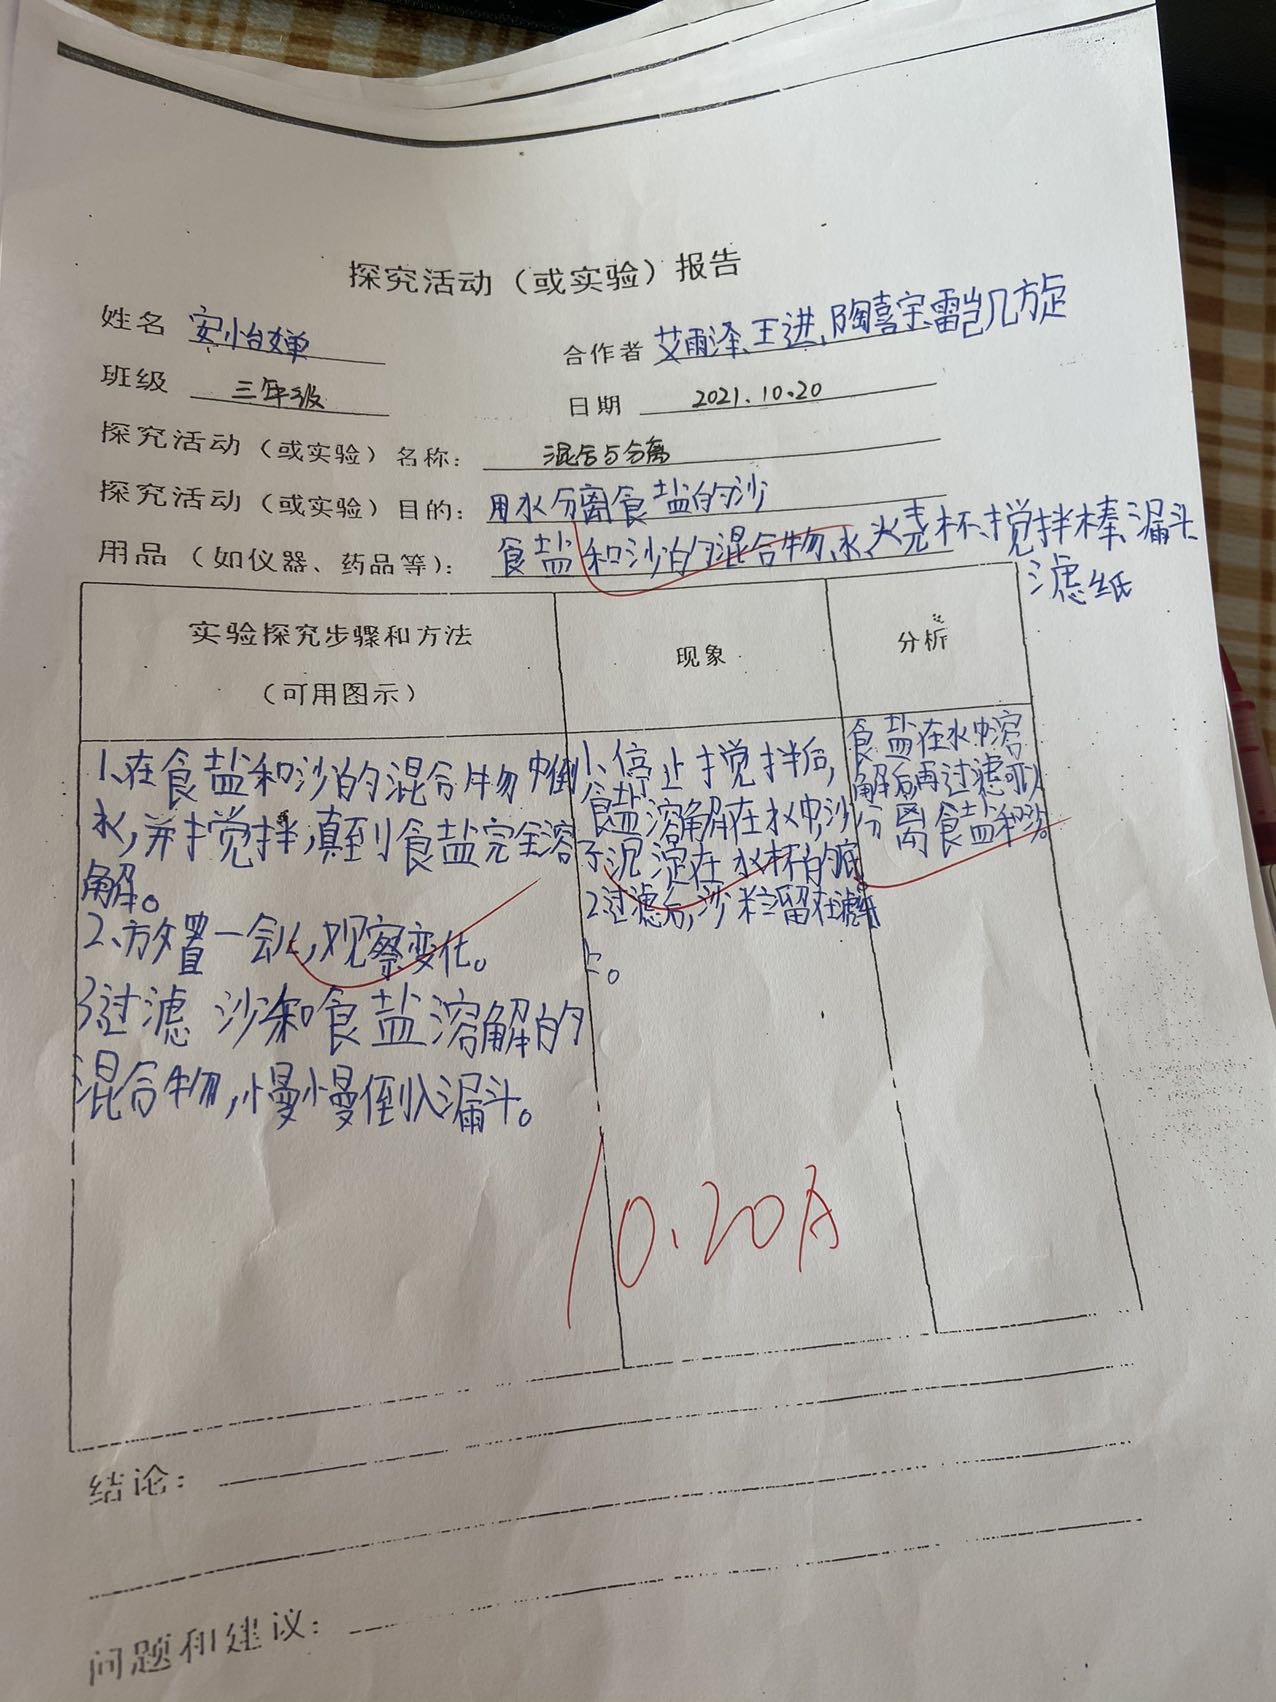 探究活动（或实验）报告
姓名 安怡婵 合作者 艾雨泽、王进、陶喜宝、雷
班级 三年级 日期 2021.10.20
探究活动（或实验）名称： 混合与分离
探究活动（或实验）目的： 用水分离食盐的沙
用品（如仪器、药品等）： 食盐和沙的混合物、水、烧杯、搅拌棒、漏斗
滤纸
实验探究步骤和方法
（可用图示）
现象
分析
1、在食盐和沙的混合物中倒
水，并搅拌，直到食盐完全溶
解。
2、放置一会儿，观察变化。
3过滤 沙和食盐溶解的
混合物，慢慢倒入漏斗。
1、停止搅拌后，
食盐溶解在水中，沙
子沉淀在水杯的底
2过滤后，沙粒留在滤纸
上。
食盐在水中溶
解后再过滤可以
分离食盐和沙。
10.20A
结论：
问题和建议：